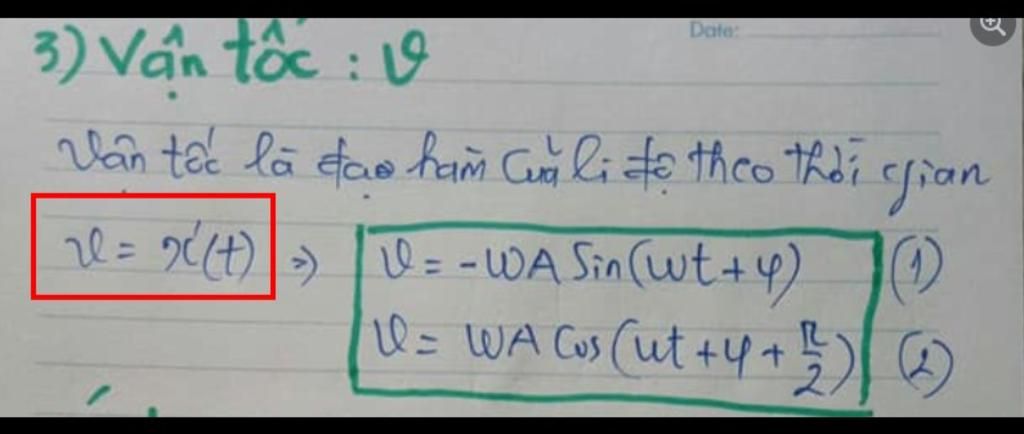 Date:
3) Vận tốc : v
Vận tốc là đạo hàm của li độ theo thời gian
v = x'(t) => v = -ωA Sin(ωt + φ) (1)
v = ωA Cos(ωt + φ + π/2) (2)